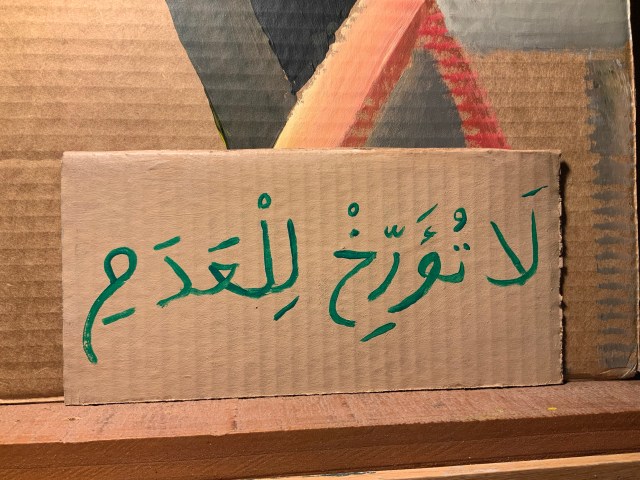 لَا تُؤَرِّخْ لِلْعَدَمِ